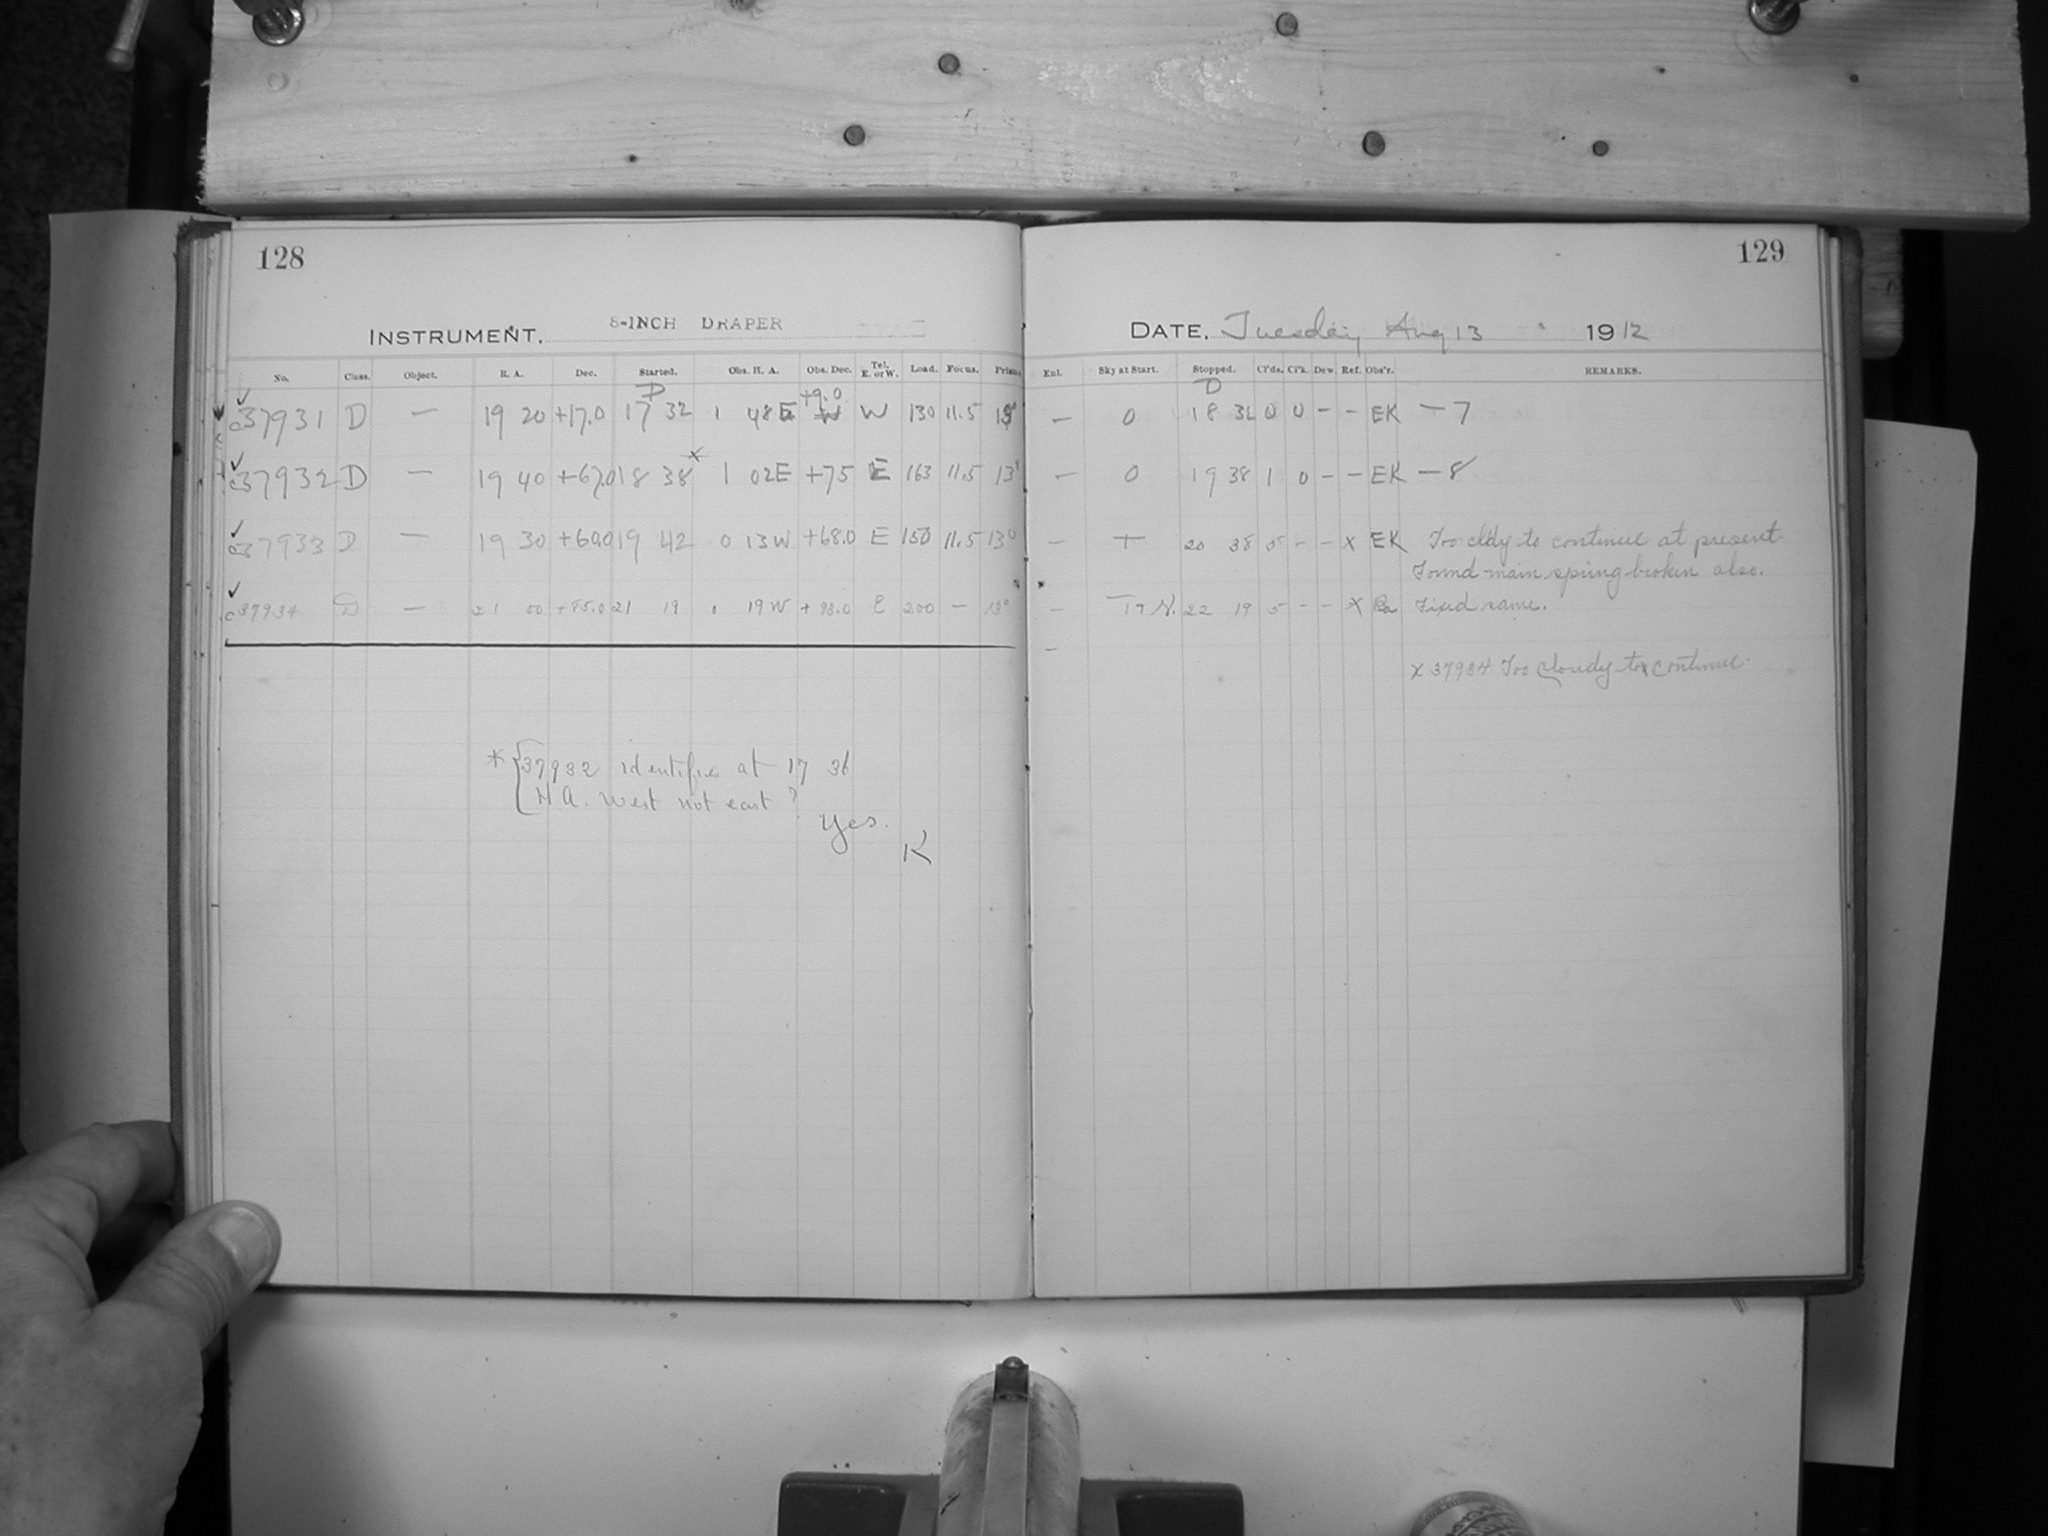 128
129
INSTRUMENT. 8-INCH DRAPER
DATE. Tuesday Aug 13 1912
No. Class. Object. R. A. Dec. Started. Obs. H. A. Obs. Dec. Tel. E. or W. Load. Focus. Prism
Enl. Sky at Start. Stopped. Cl'ds. Cl'k. Dew Ref. Obs'r. REMARKS.
D +9.0 D
c37931 D — 19 20 +17.0 17 32 1 48 E W 130 11.5 13° — 0 18 32 0 0 – – EK — 7
c37932 D — 19 40 +67.0 18 38 x 1 02E +75 E 163 11.5 13° — 0 19 38 1 0 – – EK — 8
c37933 D — 19 30 +60.0 19 42 0 13W +68.0 E 150 11.5 13° – + 20 38 5 – – x EK Too cldy to continue at present
Found main spring broken also.
c37934 D — 21 00 +85.0 21 19 0 19 W + 93.0 E 200 – 13° – 22 19 5 – – x Fixed same.
–
x 37934 Too cloudy to continue.
* 37932 identifies at 17 36
H A. West not east?
Yes.
K